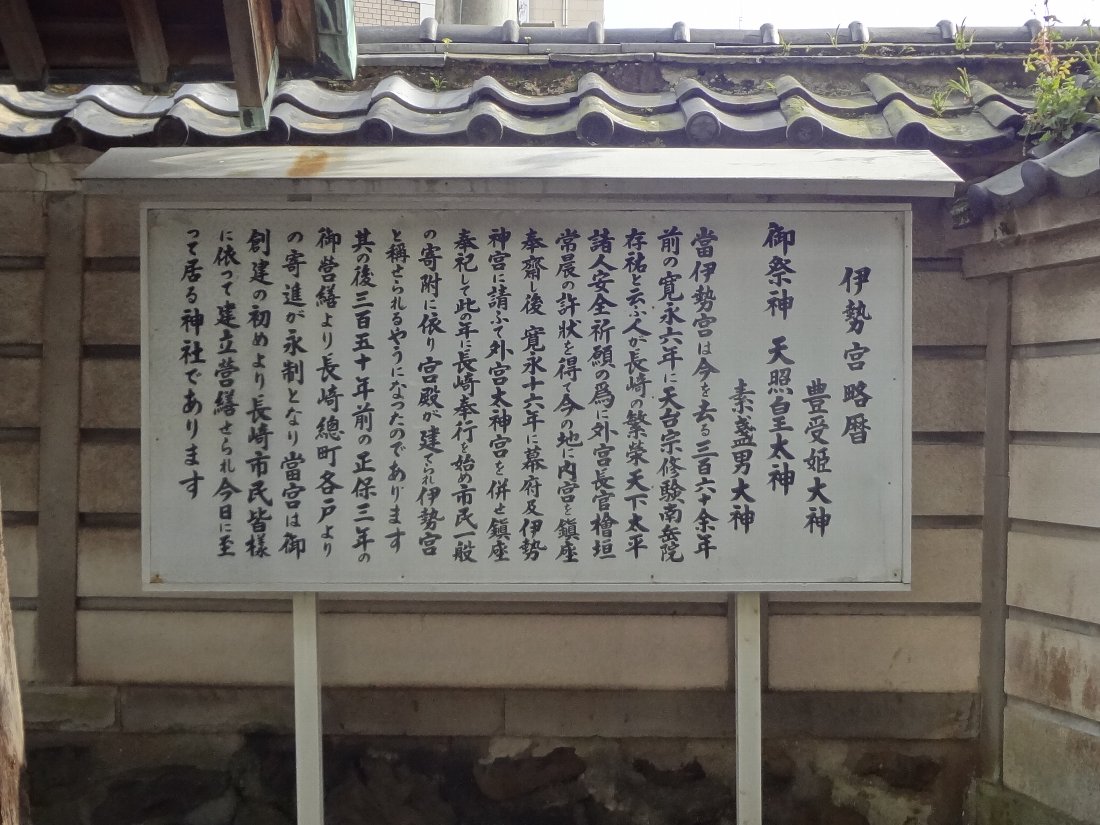 伊勢宮略暦
豊受姫大神
御祭神 天照皇太神
素盞男大神
當伊勢宮は今を去る三百六十余年
前の寛永六年に天台宗修験南岳院
存祐と云ふ人が長崎の繁栄天下太平
諸人安全祈願の爲に外宮長官檜垣
常晨の許状を得て今の地に内宮を鎭座
奉齋し後 寛永十六年に幕府及伊勢
神宮に請ふて外宮大神宮を併せ鎭座
奉祀して此の年に長崎奉行を始め市民一般
の寄附に依り 宮殿が建てられ伊勢宮
と稱せられるやうになつたのであります
其の後三百五十年前の正保三年の
御營繕より長崎總町各戸より
の寄進が永制となり當宮は御
創建の初めより長崎市民皆様
に依って建立營繕せられ今日に至
って居る神社であります